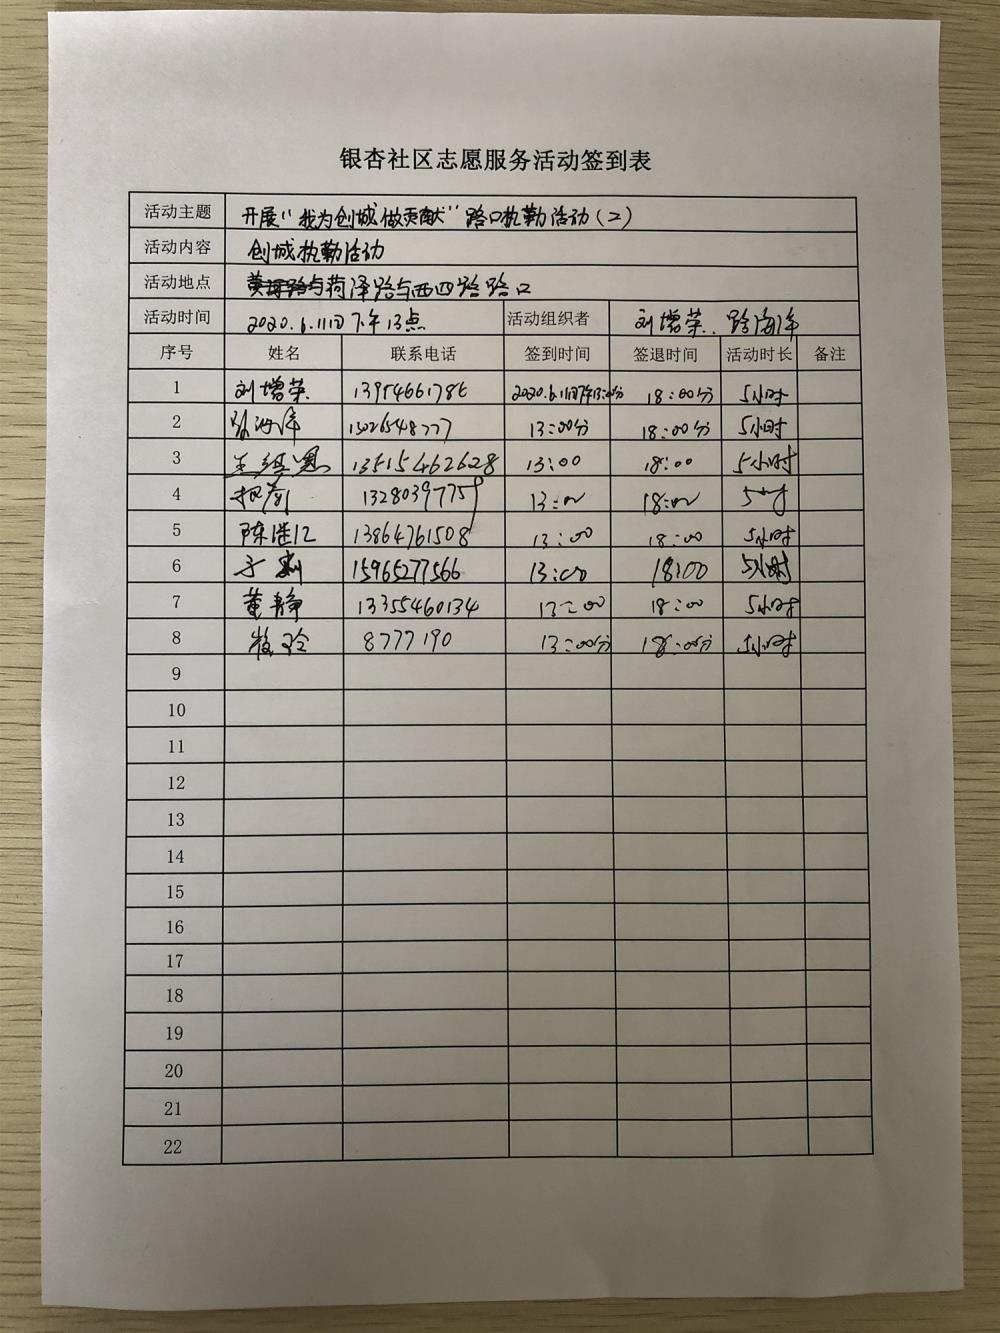 银杏社区志愿服务活动签到表
活动主题 开展“我为创城做贡献”路口执勤活动(二)
活动内容 创城执勤活动
活动地点 荷泽路与西四路路口
活动时间 2020.6.11日下午13点 活动组织者 刘增荣、路海洋
序号 姓名 联系电话 签到时间 签退时间 活动时长 备注
1 刘增荣 1395466178 2020.6.11日下午13:00分 18:00分 5小时
2 路海洋 15026548777 13:00分 18:00分 5小时
3 13515462628 13:00 18:00 5小时
4 13280397759 13:00 18:00
5 13864761508 13:00 18:00 5小时
6 15965277566 13:00 18:00 5小时
7 董静 13355460134 13:00 18:00 5小时
8 8777190 13:00分 18:00分 5小时
9
10
11
12
13
14
15
16
17
18
19
20
21
22